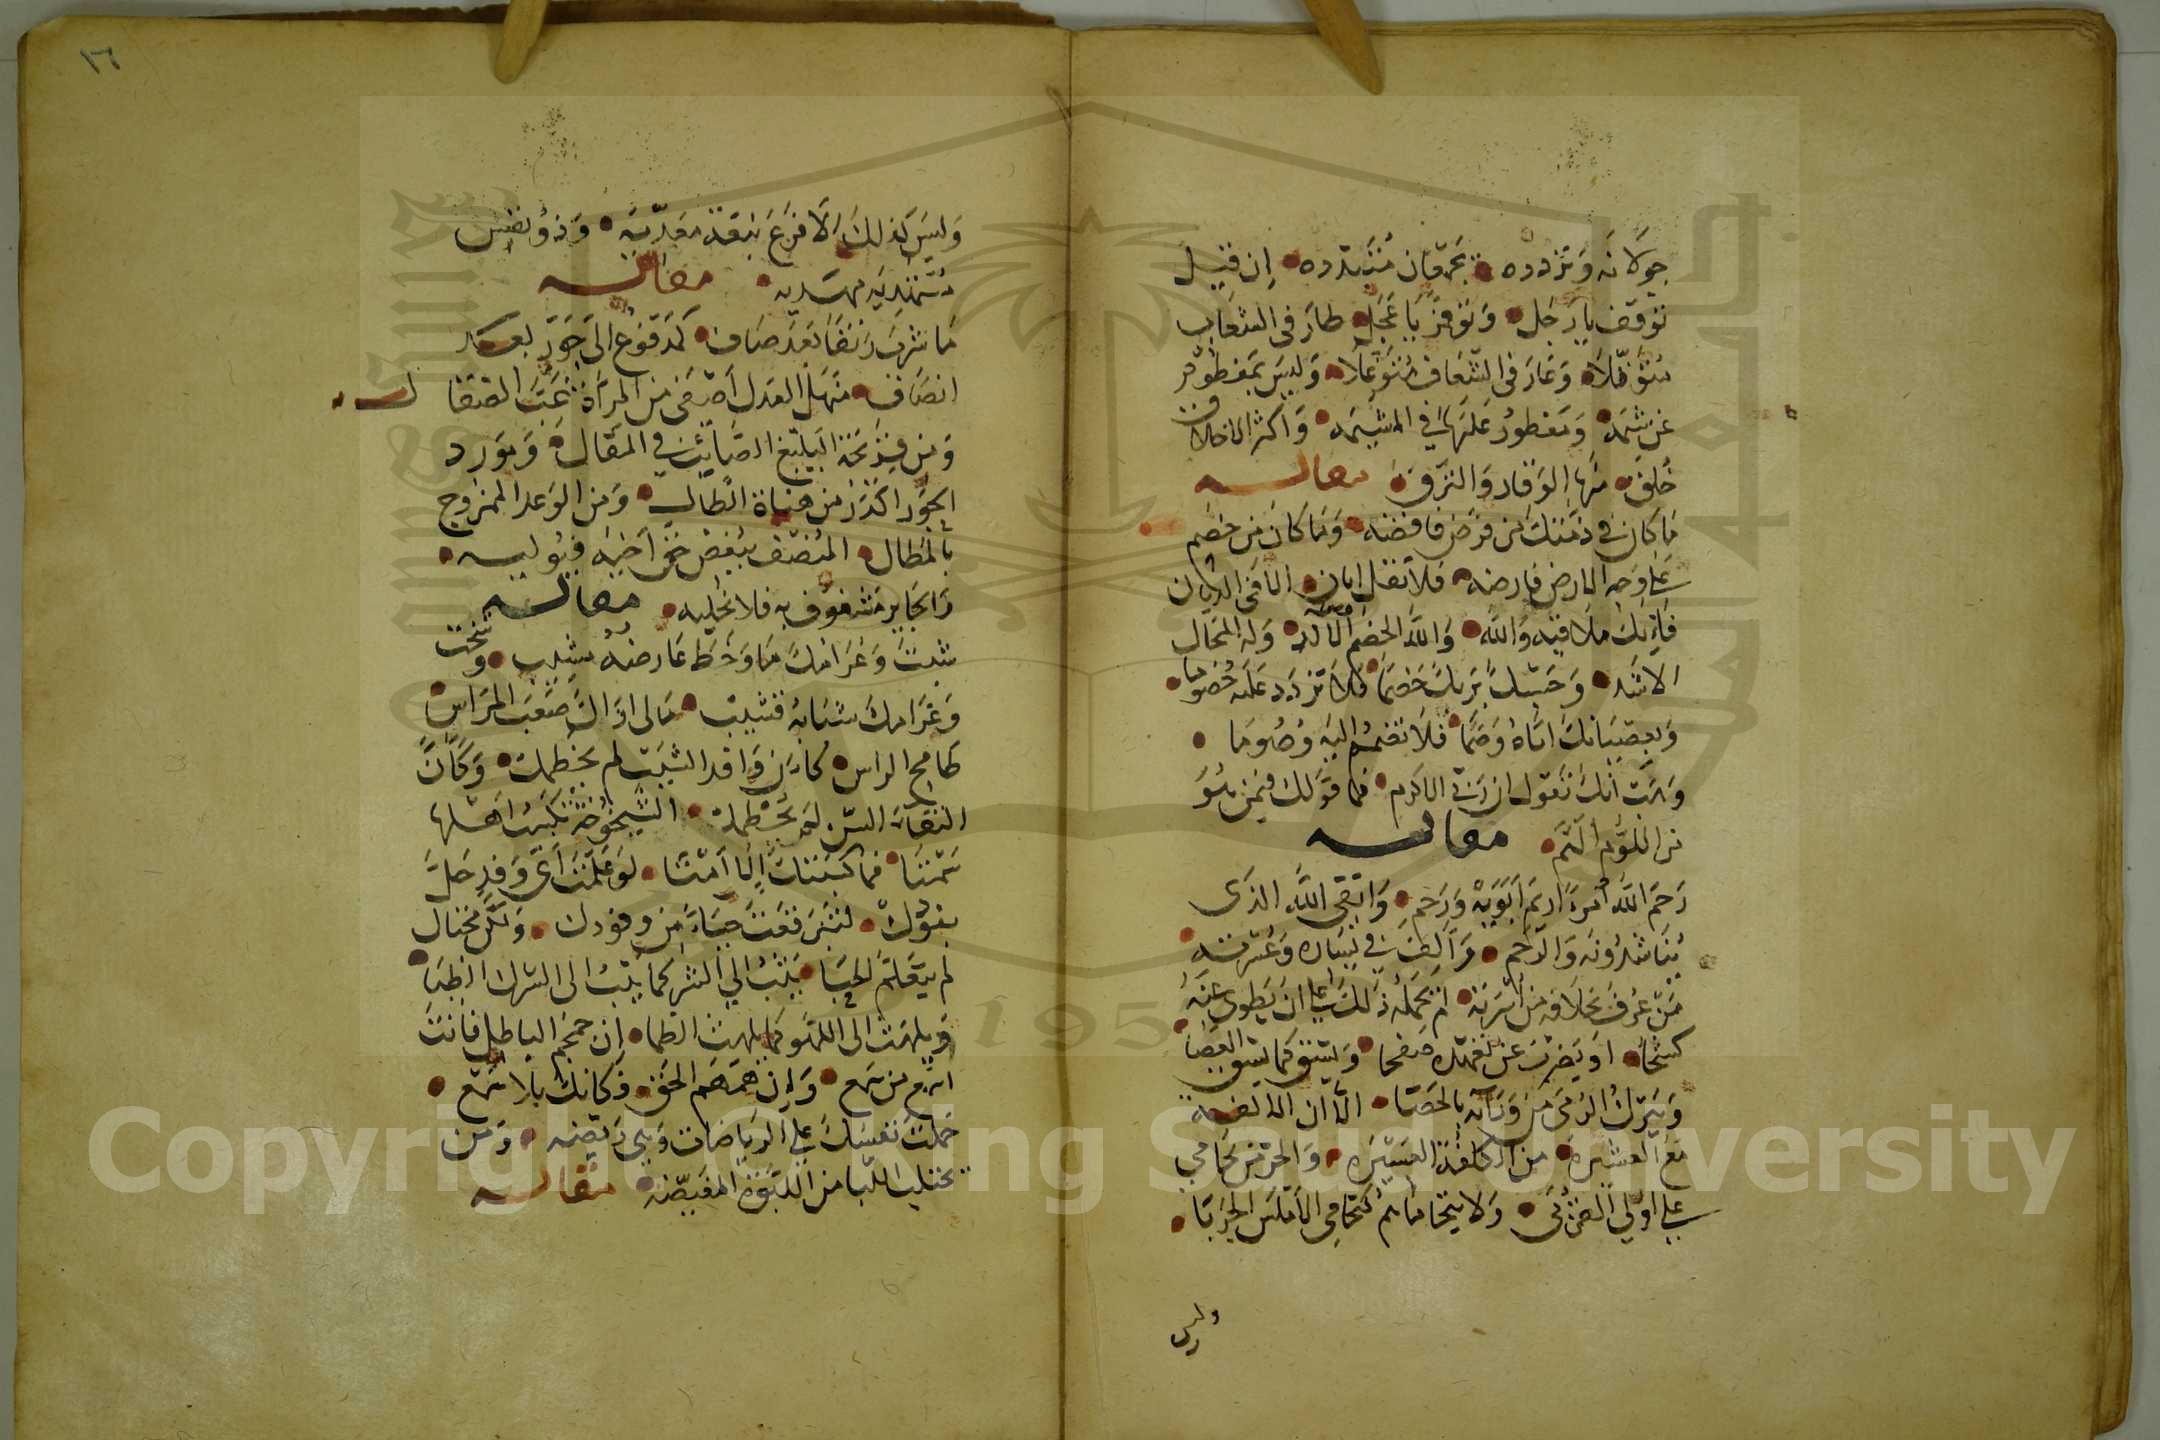 جولانه وتردده بخرقان متبدده إن قيل
توقف يا رجل وتوقر يا عجل طار في الشعاب
متوقلا وغار في الشعاف متوغلا وليس بمفطور
عن شمه ومفطور عليها في المشيمه وأكثر الأخلاق
خلق منها الوقار والنزق مقاله
ما كان في ذمتك من فرض فاقضه وما كان من خصم
على وجه الأرض فارضه فلا تقل إنا الأقي الديان
فإنك ملاقيه والله والله الخصم الألد وله المحال
الأشد وحسبك بربك خصما فلا تزدد عليه خصوما
وبعصيانك إياه وصما فلا تضم إليه وصوما
وهب أنك تقول إن ربي الأكرم فما قولك فيمن هو
من اللؤم ألأم مقاله
رحم الله امرأ رحم أبويه ورحم واتقى الله الذي
يناشدونه والرحم وألطف في يساره وعسرته
من عرف بخلافه من أسرته لم يحمله ذلك على أن يطوي عنه
كشحا أو يضرب عن تعهده صفحا ويشق كما يشق العصا
ويترك الرمي من ورائه بالحصا ألا إن الألفة
مع العشيرة من الكلفة العسيرة والحر من يحامي
على أولي القربى ولا يتحاماهم كتحامي الأملس الجربا
وليس
١٦
وليس كذلك إلا فرع نبقة معديه وذو نفس
متهديه مهديه مقاله
ما شرب رنقا بعد صاف كمدفوع إلى جور بعد
انصاف منهل العدل أصفى من المرآة غب الصقال
ومن قريحة البليغ الصائب في المقال ومورد
الجور أكدر من هناة الطال ومن الوعد الممزوج
بالمطال المنصف يبغض حق أخيه فيوليه
والجاير مشغوف به فلا يخليه مقاله
شبت وغرامك ما وخط عارضه شيب وشخت
وغرامك شبابه قشيب ما لي أراك صعب المراس
طامح الراس كأن وافد الشيب لم يخطمك وكأن
التقاء السن لم يحطمك الشيخوخة تكسب أهلها
سمتا فما كسبتك إلا أمتا لو علمت أي وفد حل
بفودك لتبرقعت حياء من وفودك ولكن محيال
لم يتعلم الحيا يثب إلى الشر كما يثب إلى الشرك الظبا
ويلهث إلى اللهو كما يلهث الظما إن حمحم الباطل فانت
أسمع من سمع وإن همهم الحق فكأنك بلا سمع
حملت نفسك على الرياضات وهي ريضه ومن
يحتلب اللبا من اللبؤة المغيضه مقاله